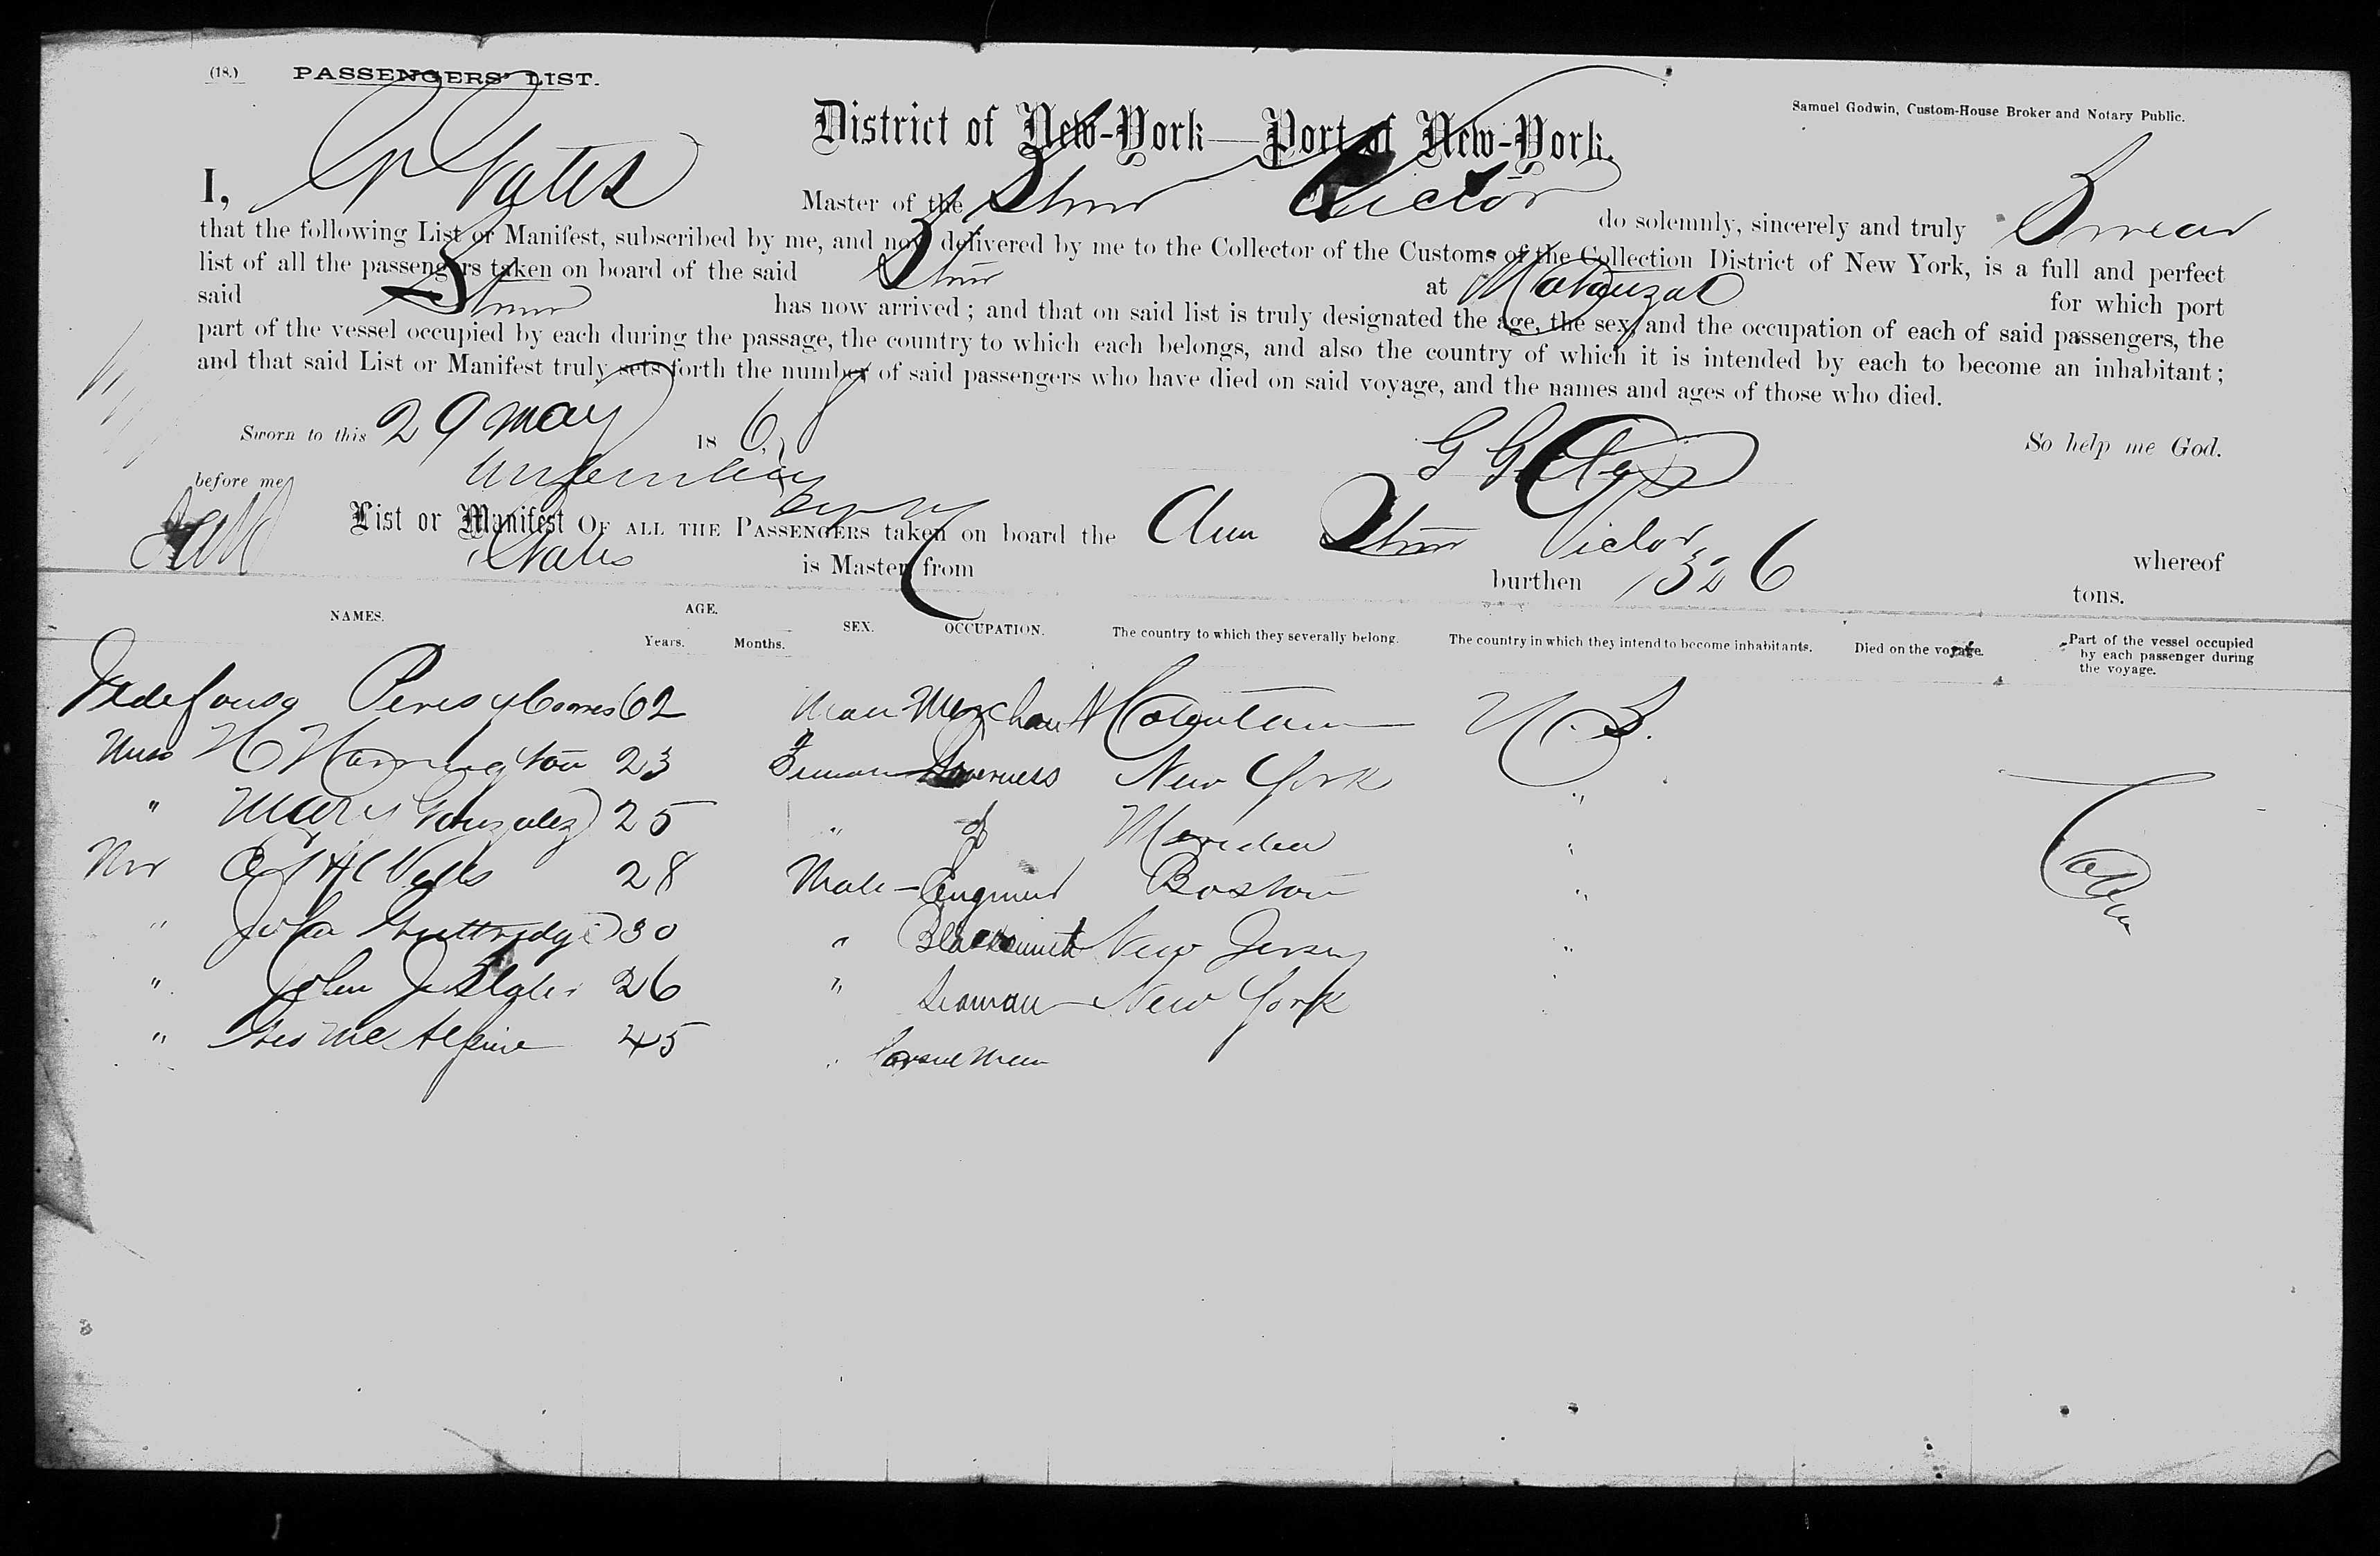 (18.) PASSENGERS' LIST.
Samuel Godwin, Custom-House Broker and Notary Public.
District of New-York—Port of New-York.
I, Gates Master of the Stmr Victor do solemnly, sincerely and truly Swear
that the following List or Manifest, subscribed by me, and now delivered by me to the Collector of the Customs of the Collection District of New York, is a full and perfect
list of all the passengers taken on board of the said Stmr at Matanzas for which port
said Stmr has now arrived; and that on said list is truly designated the age, the sex, and the occupation of each of said passengers, the
part of the vessel occupied by each during the passage, the country to which each belongs, and also the country of which it is intended by each to become an inhabitant;
and that said List or Manifest truly sets forth the number of said passengers who have died on said voyage, and the names and ages of those who died.
Sworn to this 29 May 1868 So help me God.
before me
List or Manifest OF ALL THE PASSENGERS taken on board the Am Stmr Victor whereof
Gates is Master from burthen 1326 tons.
NAMES. AGE. Years. Months. SEX. OCCUPATION. The country to which they severally belong. The country in which they intend to become inhabitants. Died on the voyage. Part of the vessel occupied by each passenger during the voyage.
Ildefonso 62 Man Merchant U.S.
Miss H Harrington 23 Governess New York "
" Mary Gonzalez 25 " Cabin
Mr 28 Male Engineer Boston "
" John 30 " Blacksmith New Jersey "
" John 26 " Seaman New York
" McAlpine 45 "